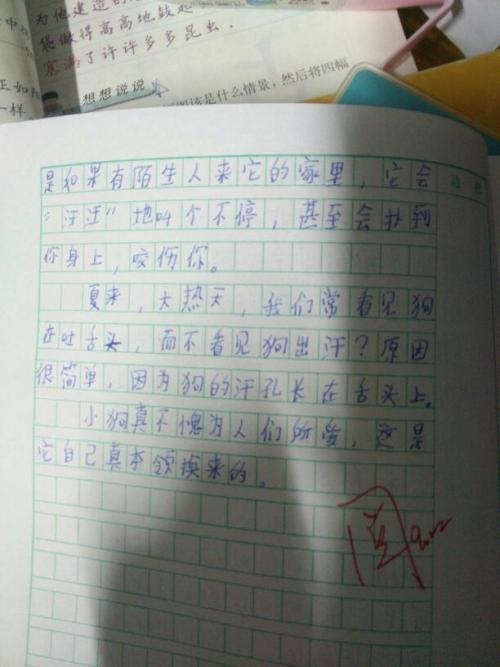 为他建造的
袋做得高高地鼓起
塞满了许许多多昆虫.
想想说说
该是什么情景，然后将四幅
正如
一样
是如果有陌生人来它的家里，它会
“汪汪”地叫个不停，甚至会扑到
你身上，咬伤你。
夏来，大热天，我们常看见狗
在吐舌头，而不看见狗出汗？原因
很简单，因为狗的汗孔长在舌头上.
小狗真不愧为人们所爱，这是
它自己真本领换来的。
阅